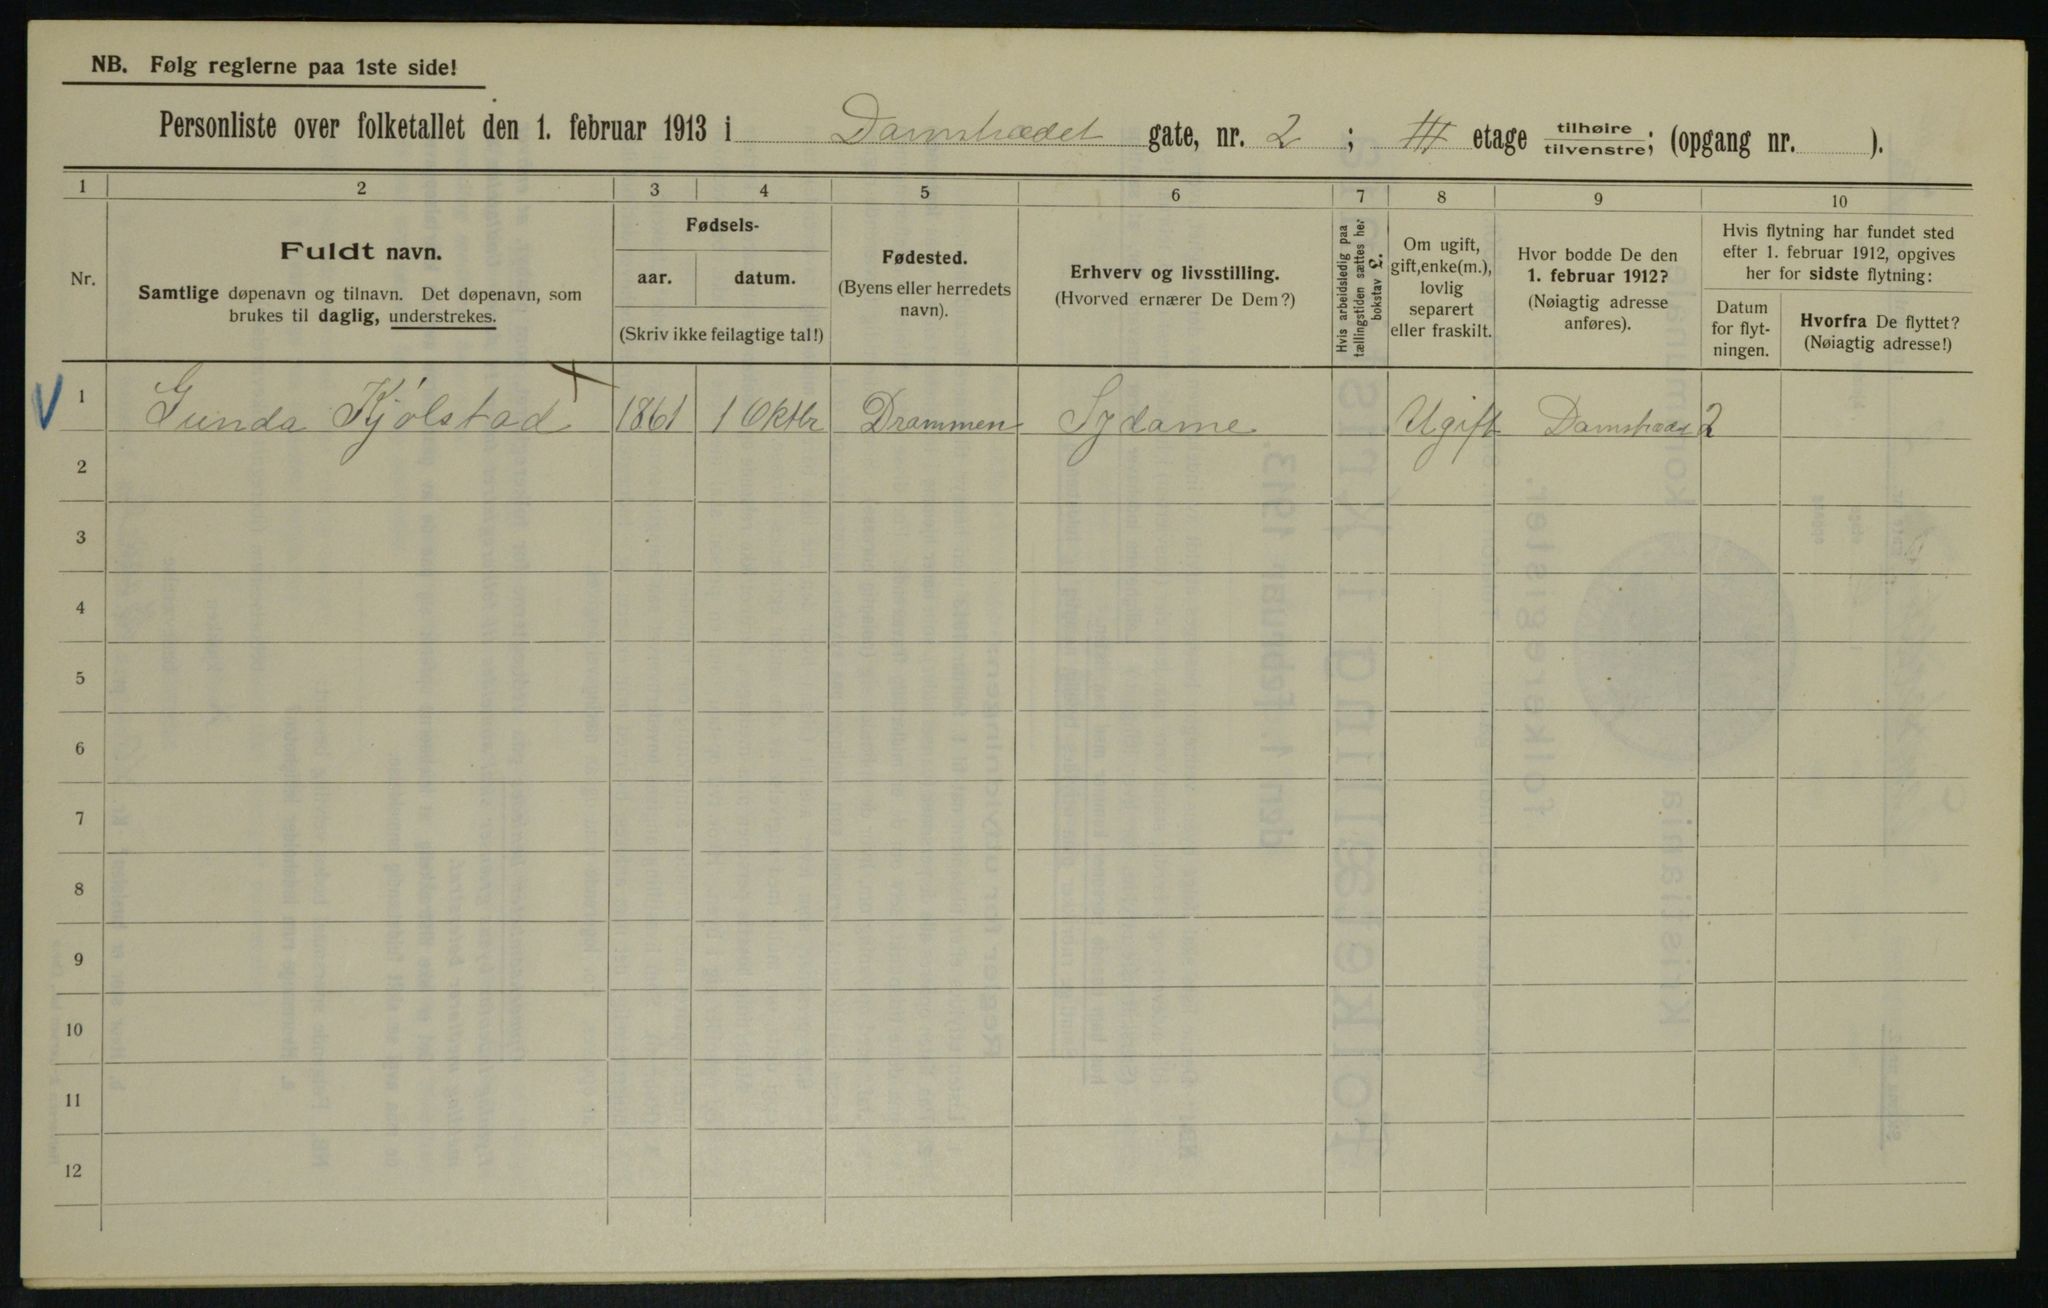 NB. Følg reglerne paa 1ste side!
Personliste over folketallet den 1. februar 1913 i Damstrædet gate, nr. 2 ; III etage tilhøire tilvenstre; (opgang nr. ).
1 2 3 4 5 6 7 8 9 10
Nr.
Fuldt navn.
Samtlige døpenavn og tilnavn. Det døpenavn, som
brukes til daglig, understrekes.
Fødsels-
aar. datum.
(Skriv ikke feilagtige tal!)
Fødested.
(Byens eller herredets
navn).
Erhverv og livsstilling.
(Hvorved ernærer De Dem?)
Hvis arbeidsledig paa
tællingstiden sættes her
bokstav
Om ugift,
gift, enke(m.),
lovlig
separert
eller fraskilt.
Hvor bodde De den
1. februar 1912?
(Nøiagtig adresse
anføres).
Hvis flytning har fundet sted
efter 1. februar 1912, opgives
her for sidste flytning:
Datum
for flyt-
ningen.
Hvorfra De flyttet?
(Nøiagtig adresse!)
1 Gunda Kjølstad 1861 1 Oktbr Drammen Sydame Ugift Damstræde 2
2
3
4
5
6
7
8
9
10
11
12